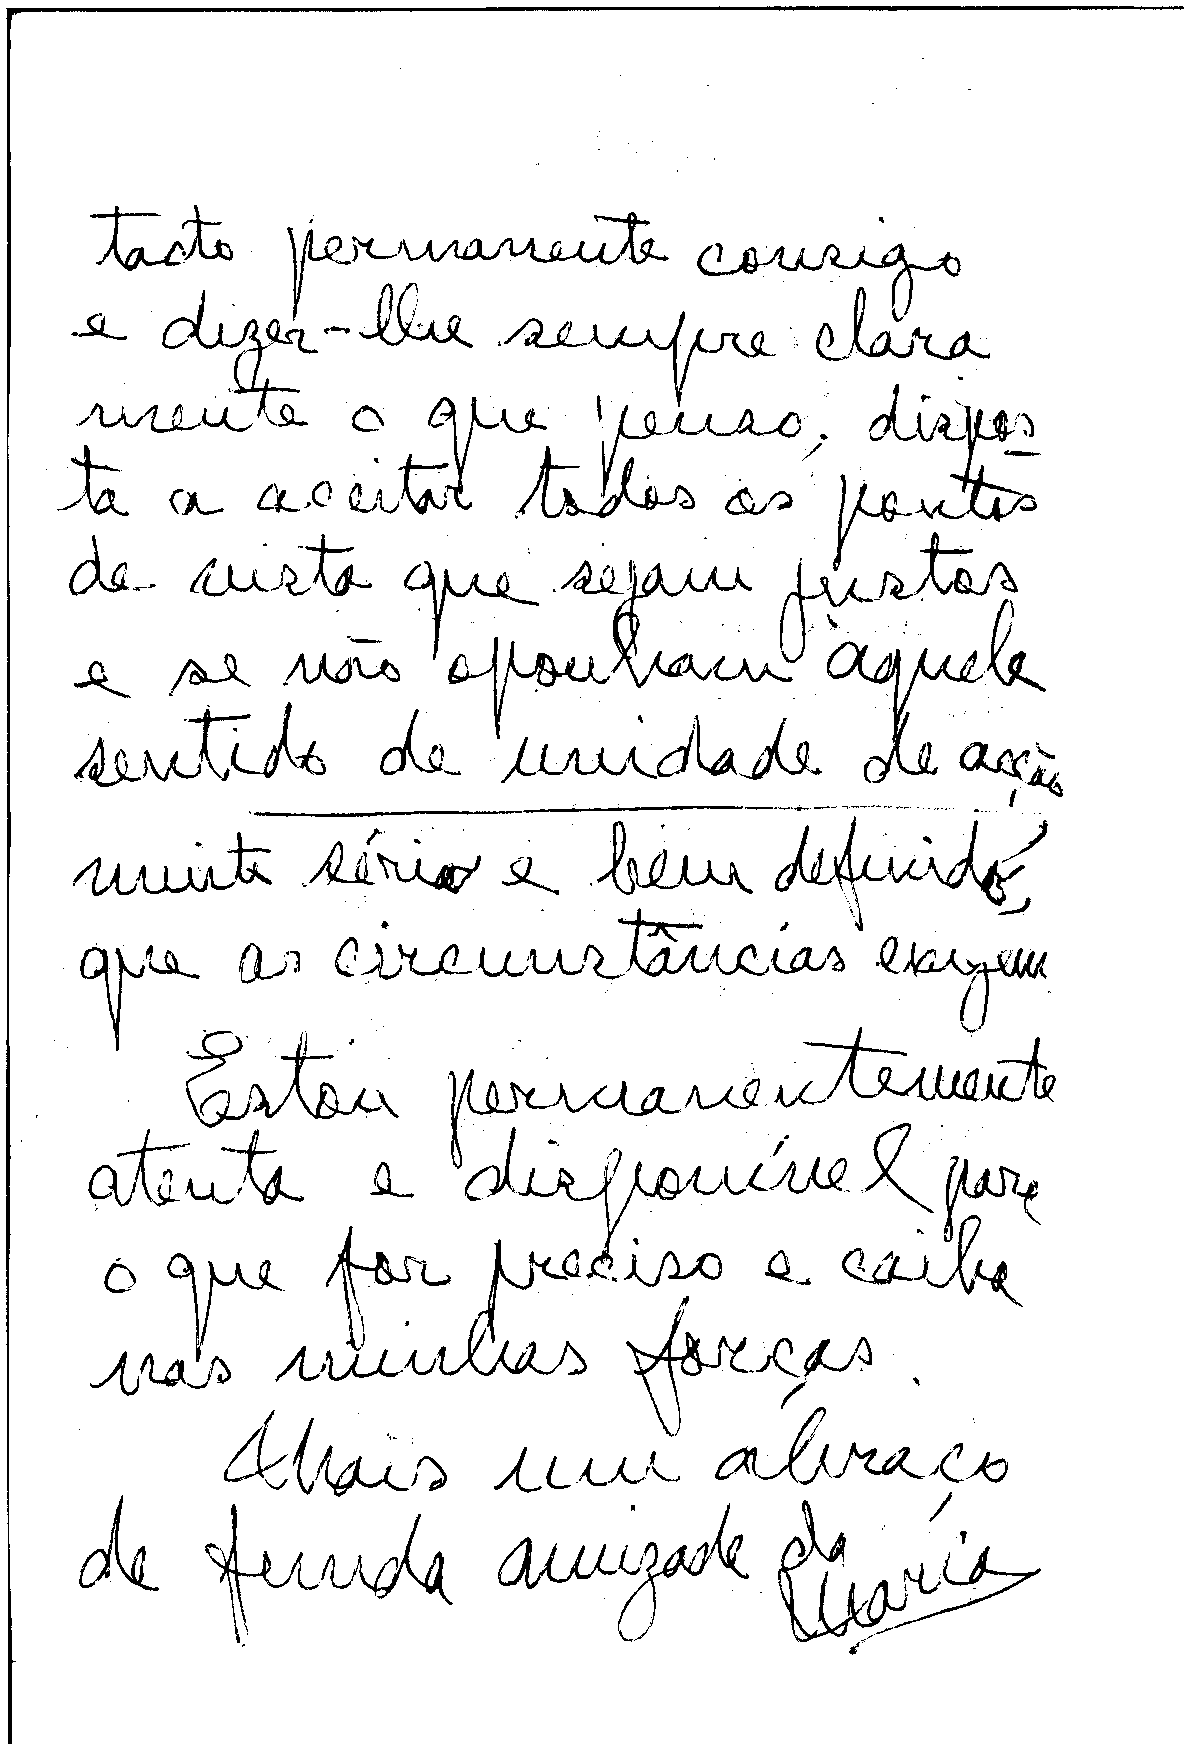 tacto permanente consigo
e dizer-lhe sempre clara
mente o que penso, dispos
ta a aceitar todos os pontos
de vista que sejam justos
e se não oponham àquele
sentido de unidade de acção
muito sério e bem definido,
que as circunstâncias exigem
Estou permanentemente
atenta e disponível para
o que for preciso e caiba
nas minhas forças.
Mais um abraço
de funda amizade da
Maria